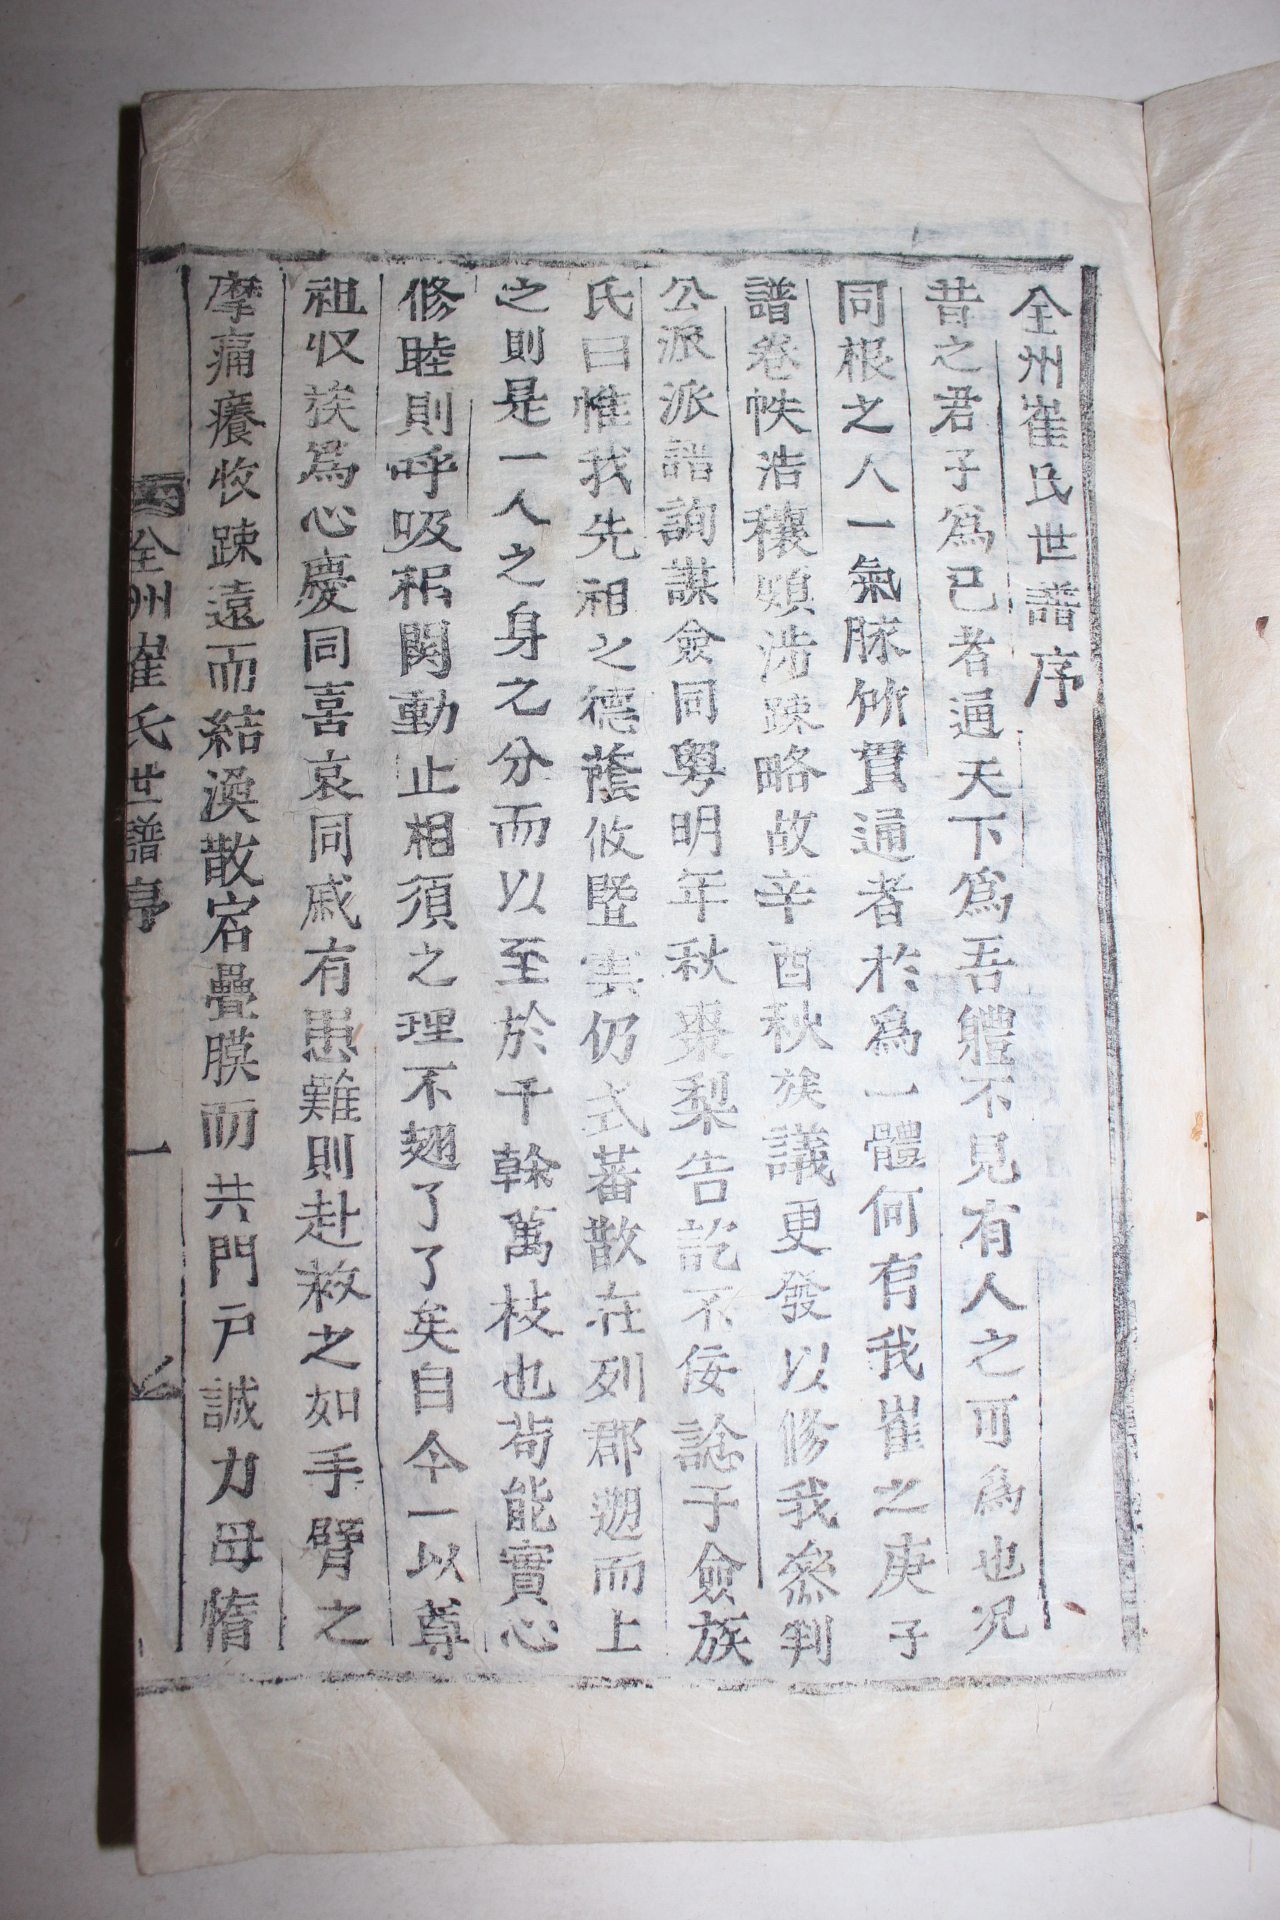 全州崔氏世譜序
昔之君子爲己者通天下爲吾軆不見有人之可爲也况
同根之人一氣脉所貫通者於爲一體何有我崔之庚子
譜卷帙浩穰頗涉踈略故辛酉秋族議更發以修我叅判
公派派譜詢謀僉同粤明年秋棗梨告訖不佞諗于僉族
氏曰惟我先祖之德蔭攸曁雲仍式蕃散在列郡遡而上
之則是一人之身之分而以至於千榦萬枝也苟能實心
修睦則呼吸相関動止相須之理不翅了了矣自今一以尊
祖収族爲心慶同喜哀同戚有患難則赴救之如手臂之
摩痛癢收踈遠而結渙散宕疊膜而共門戶誠力毋惰
全州崔氏世譜序 一